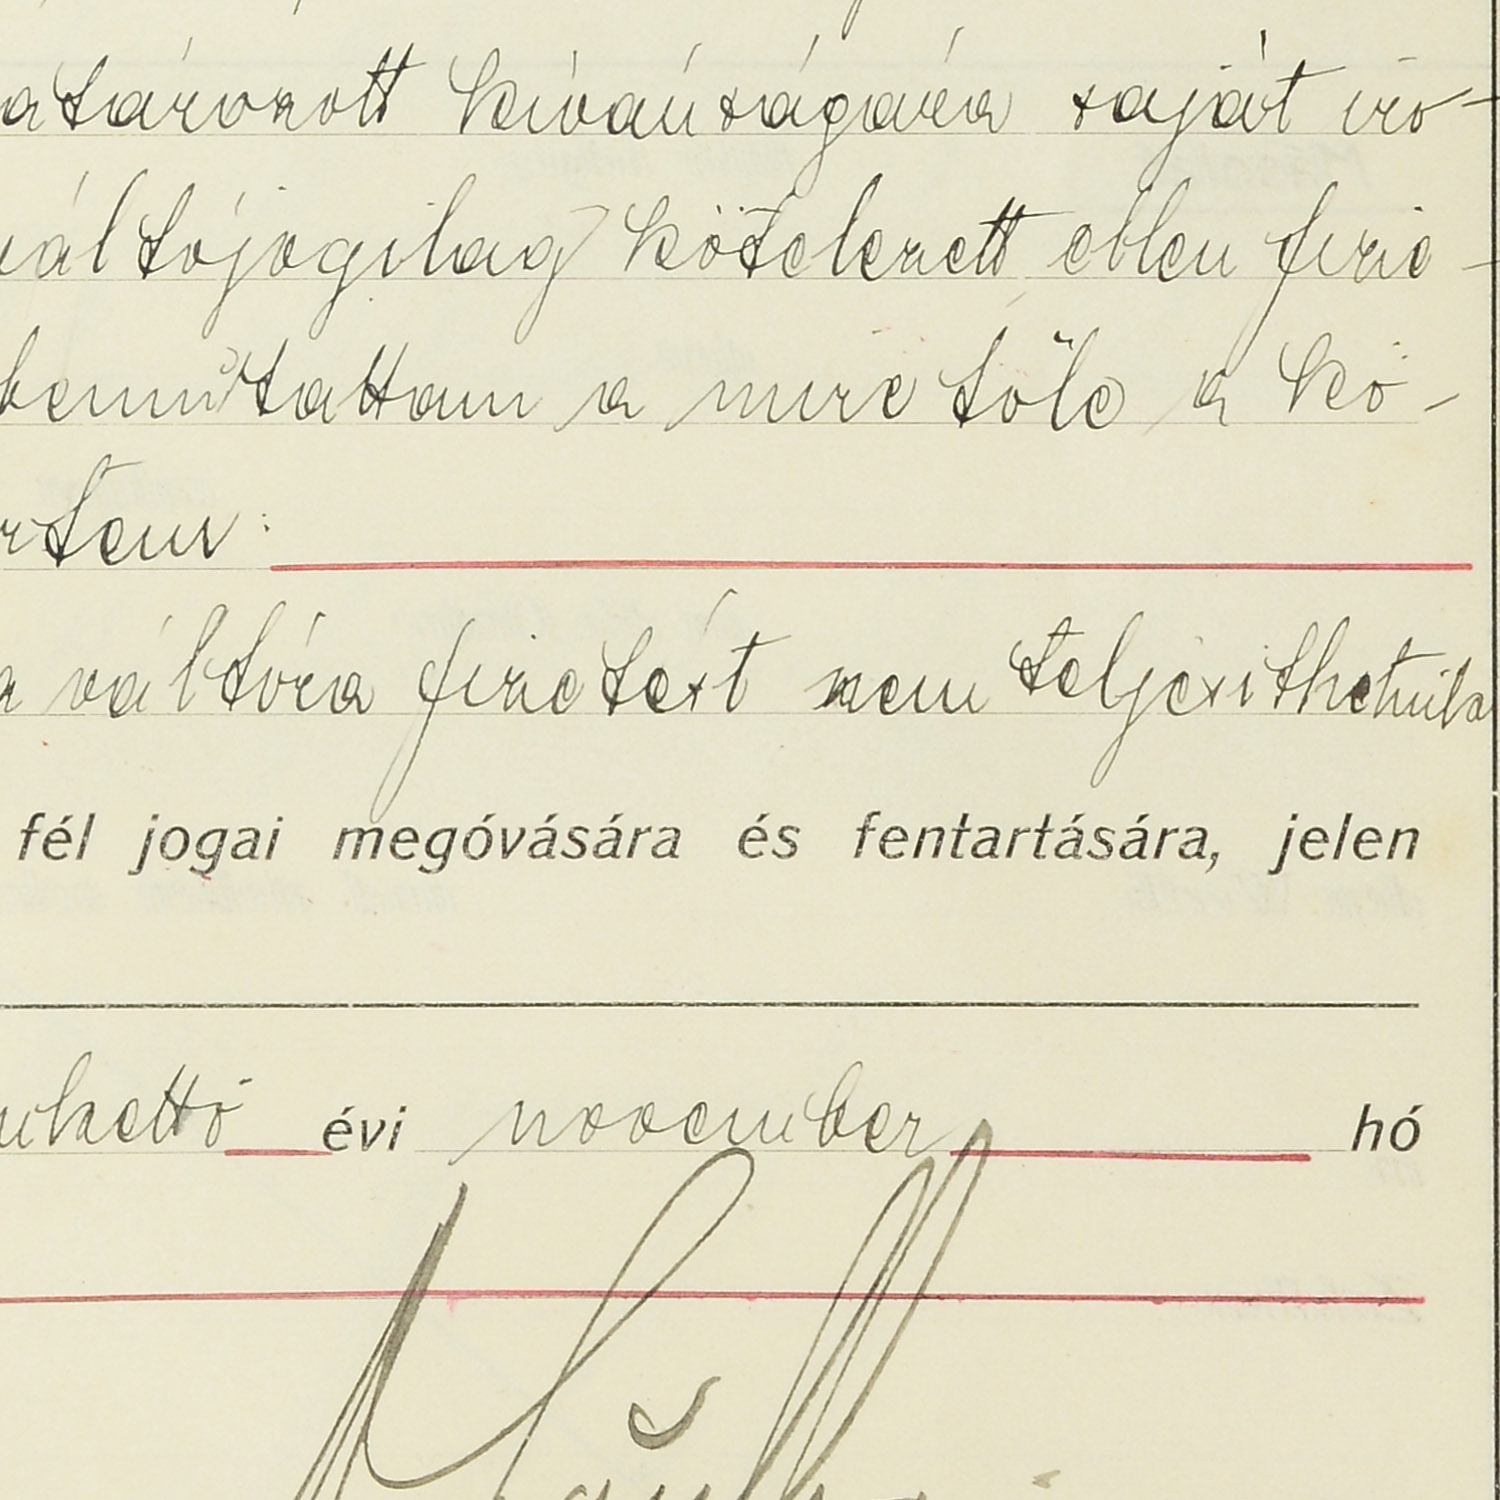 atározott kívánságára saját iro-
váltójogilag kötelezett ellen fize-
bemutattam a mire tőle a kö-
rtem:
a váltóra fizetést nem teljesithetnek
fél jogai megóvására és fentartására, jelen
nkettő évi november hó